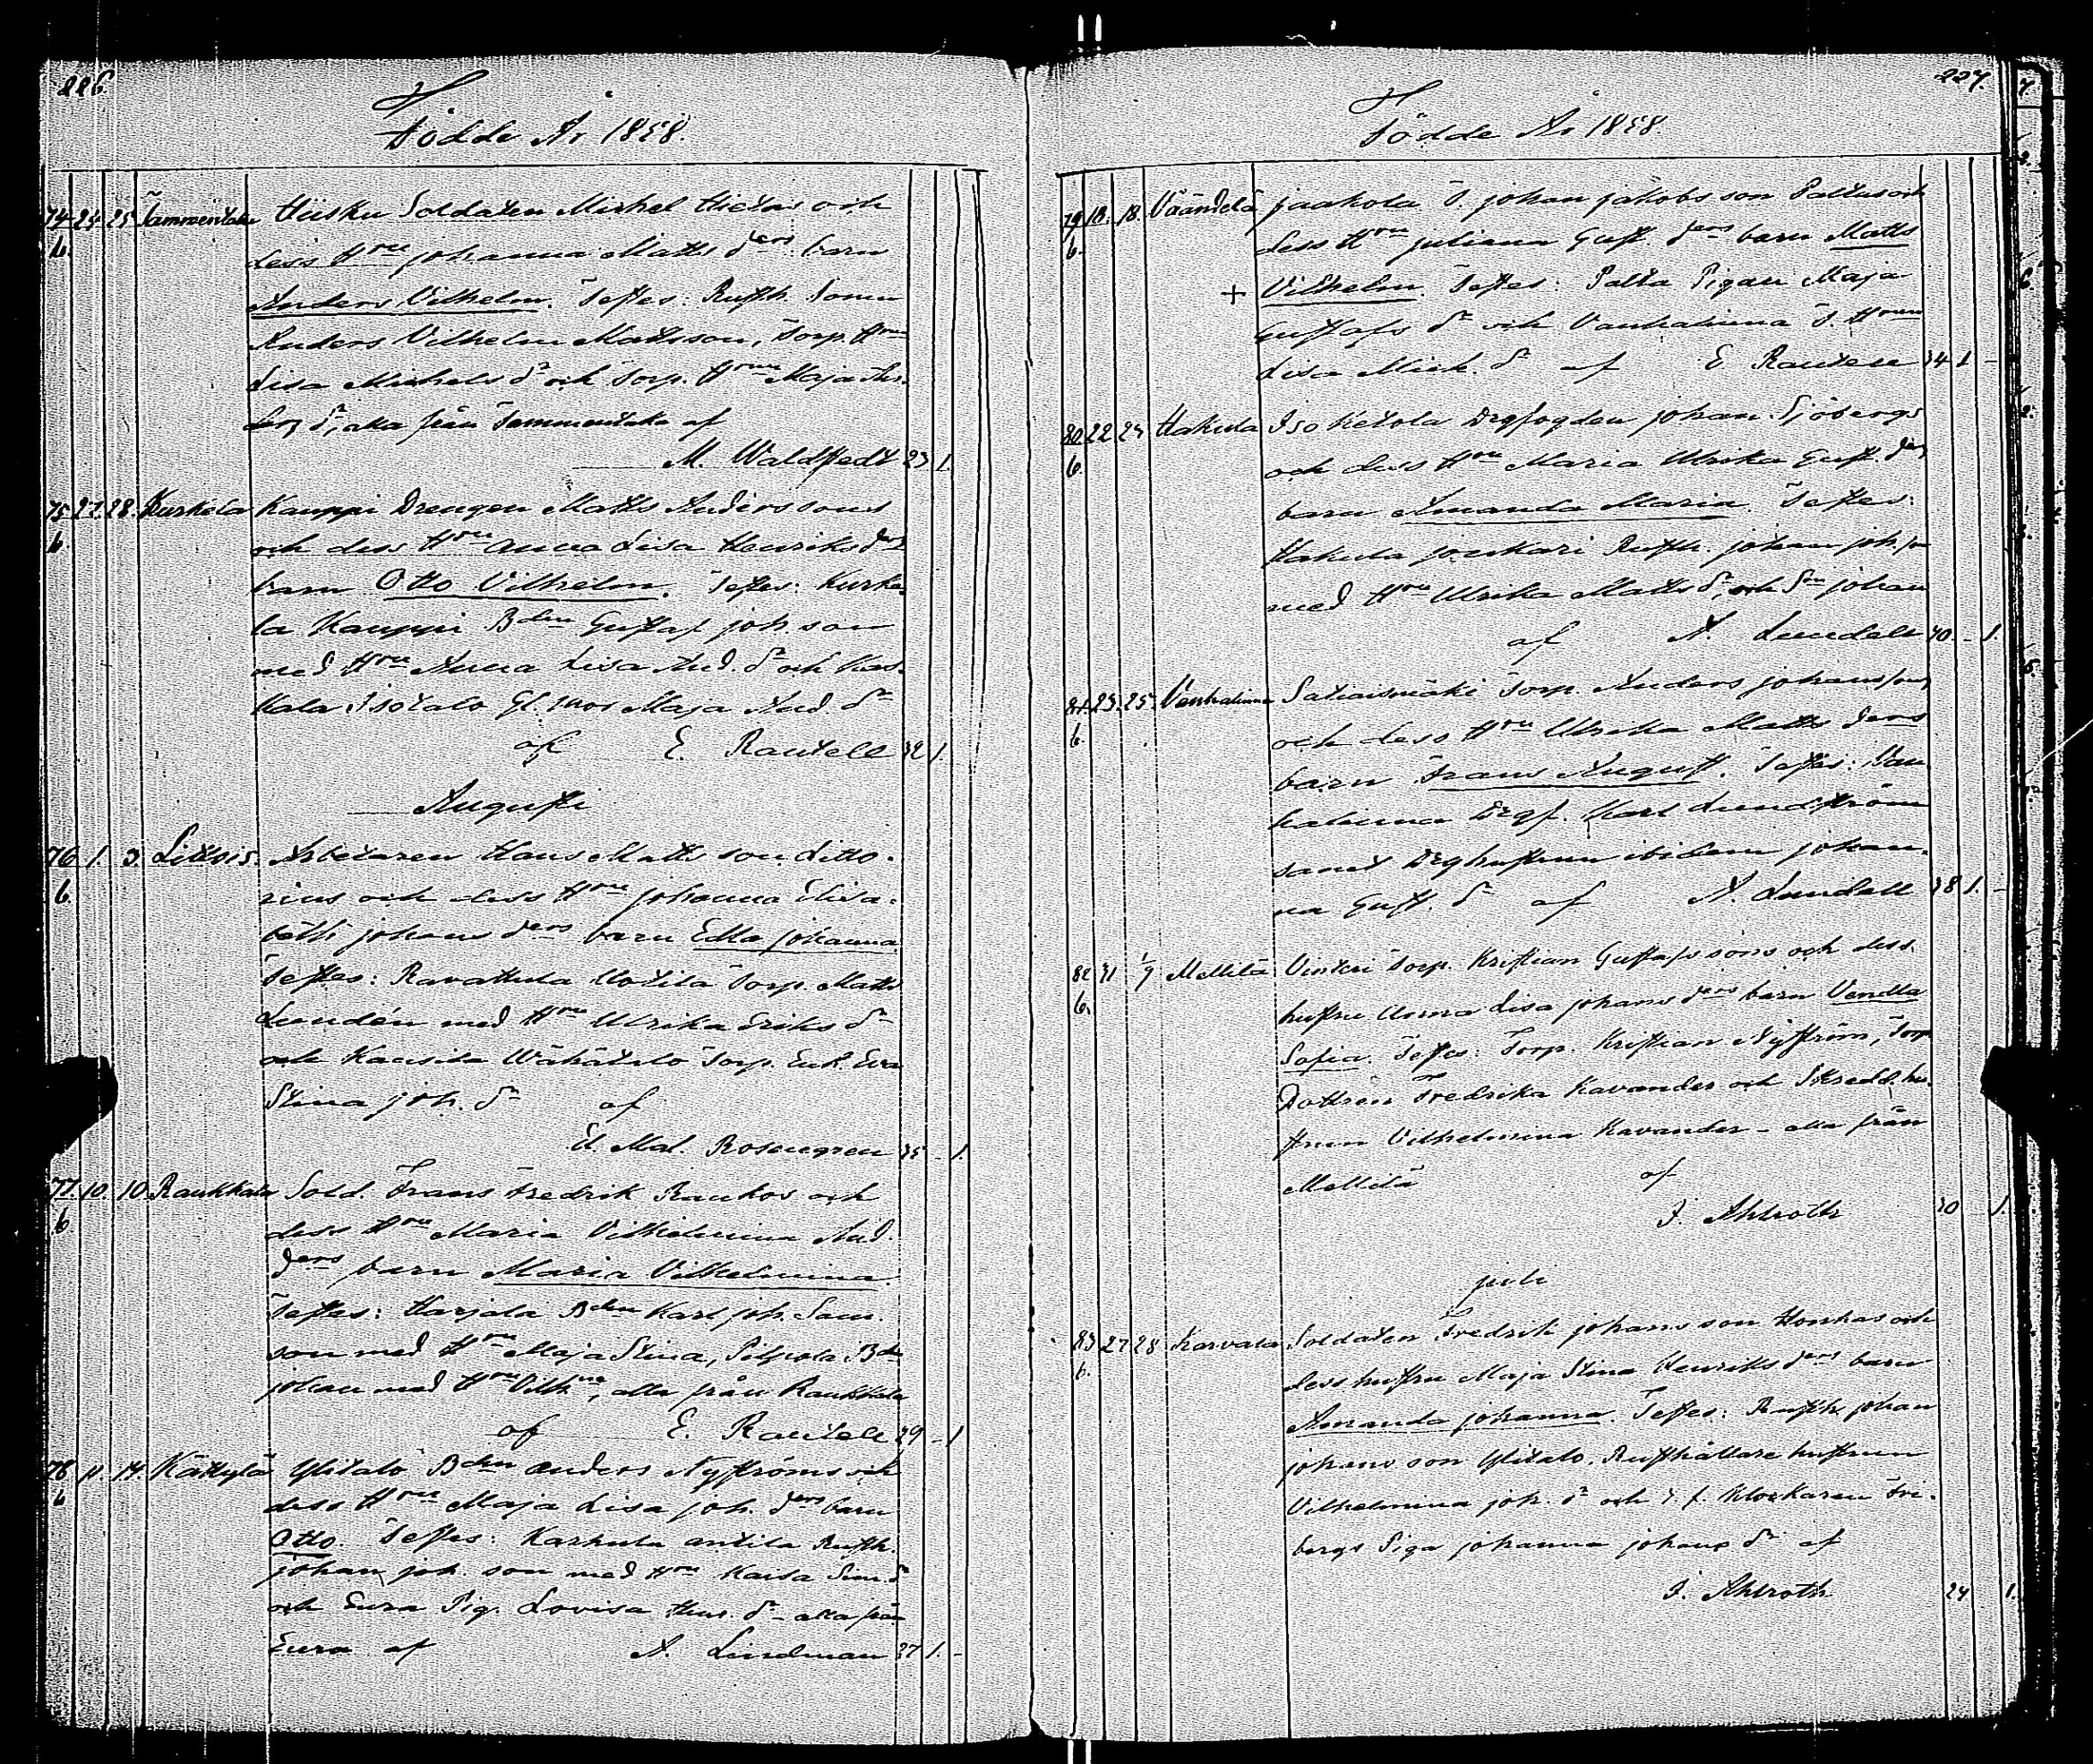 226.
Födde År 1858.
74 24 25 Tammentaka Hiisku Soldaten Michel Hietas och
b. dess Hru Johanna Matts ders barn
Anders Vilhelm. Testes: Rusth. Sonen
Anders Vilhelm Matsson, Torp. Hru
Lisa Michels dr och Torp. Hrun Maja An-
ders dr, alla från Tammentaka af
M. Waldstedt 23 1.
75 27. 28. Kurkela Kauppi Drengen Matts Anderssons
b. och dess Hru Anna Lisa Henriks ders
barn Otto Vilhelm. Testes: Kurke-
la Kauppi Bden Gustaf Joh. son
med Hru Anna Lisa And. dr och
Isotalo Gl. mor Maja And. dr
af E. Rautell 32 1.
Augusti
76 1. 3. Littois. Arbetaren Hans Matts son Litto-
b. rius och dess Hru Johanna Elisa-
beth Johans ders barn Edla Johanna
Testes: Ravattula Uotila Torp. Matts
Lundén med Hru Ulrika Eriks dr
och Kausela Wähätalo Torp. Enk. Eva
Stina Joh. dr af
Rosengren 35 - 1.
77. 10. 10. Raukkala Sold. Frans Fredrik Raukos och
b. dess Hru Maria Vilhelmina And.
ders barn Maria Vilhelmina
Testes: Harjala Bden Karl Joh. Sam.
son med Hru Maja Stina, Bden
Johan med Hru Vilhna, alla från Raukkala
af E. Rautell 29 - 1
78 11. 14. Kättylä Ylitalo Bden Anders Nyströms och
b dess Hru Maja Lisa Joh. ders barn
Otto. Testes: Karhula Antila Rusth.
Johan Joh. son med Hru Karsa Sim. dr
och Eura Pig. Lovisa dr - alla från
Eura af A. Lindman 27 1. -
227.
Födde År 1858.
79 18. 18. Väänelä Jaakola T. Johan Jakobs son Paltus och
b. dess Hru Juliana Gust. ders barn Matts
+ Vilhelm. Testes: Palta Pigan Maja
Gustafs dr och Vanhalinna T. Hrun
Lisa Mich. dr af E. Rautell 34 1 -
80 22 24 Hakula Isoketola Drgfogden Johan Sjöbergs
b. och dess Hru Maria Ulrika Gust. ders
barn Amanda Maria. Testes:
Hakula Joukari Rusth. Johan Joh. son
med Hru Ulrika Matts dr, och Sm Johan
af A. Lundell 40. - 1.
81 23. 25. Vanhalinna Satiaismäki Torp. Anders Johanssons
b. och dess Hru Ulrika Matts ders
barn Frans August. Testes: Van-
halinna Drgf. Karl Lundström
samt Drghustrun ibidem Johan-
na Gust. dr af A. Lundell 38 1. -
82 31 1/9 Mellilä Vinteri Torp. Kristian Gustafssons och dess
b. hustru Anna Lisa Johans ders barn Vendla
Sofia. Testes: Torp. Kristian Nyström, Torp.
Dottren Fredrika Kavander och Skredd. hu-
strun Vilhelmina Kavander - alla från
Mellilä af
I. Ahlroth 30 1.
Juli
83 27 28 Karvala Soldaten Fredrik Johans son Honkas och
b. dess hustru Maja Stina Henriks ders barn
Amanda Johanna. Testes: Rusth. Johan
Johans son Ylitalo, Rusthållare hustrun
Vilhelmina Joh. dr och Klockaren Fri-
bergs Piga Johanna Johans dr af
I. Ahlroth 24 1.